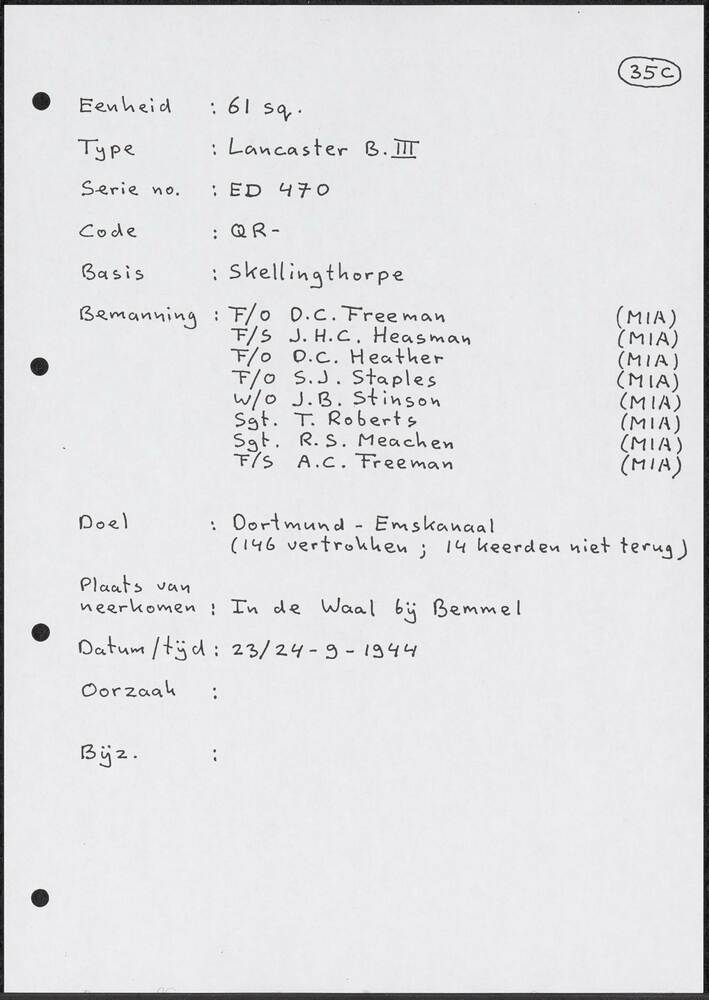 35C
Eenheid : 61 sq.
Type : Lancaster B.III
Serie no. : ED 470
Code : QR-
Basis : Skellingthorpe
Bemanning : F/O D.C. Freeman (MIA)
F/S J.H.C. Heasman (MIA)
F/O D.C. Heather (MIA)
F/O S.J. Staples (MIA)
W/O J.B. Stinson (MIA)
Sgt. T. Roberts (MIA)
Sgt. R.S. Meachen (MIA)
F/S A.C. Freeman (MIA)
Doel : Dortmund - Emskanaal
(146 vertrokken ; 14 keerden niet terug)
Plaats van
neerkomen : In de Waal bij Bemmel
Datum/tijd : 23/24-9-1944
Oorzaak :
Bijz. :